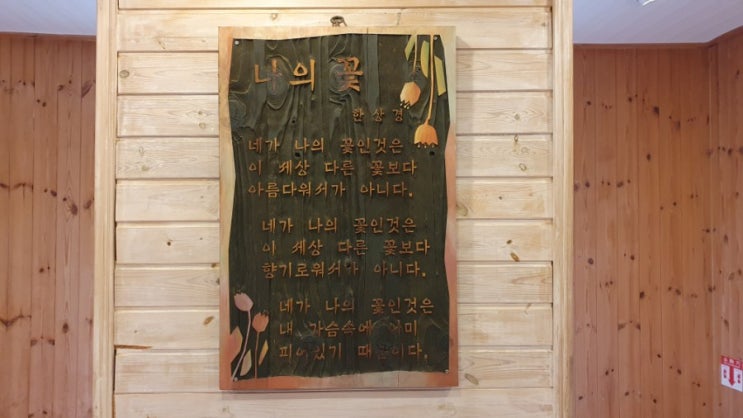 나의 꽃
한상경
네가 나의 꽃인것은
이 세상 다른 꽃보다
아름다워서가 아니다.
네가 나의 꽃인것은
이 세상 다른 꽃보다
향기로워서가 아니다.
네가 나의 꽃인것은
내 가슴속에 이미
피어있기 때문이다.
소화기